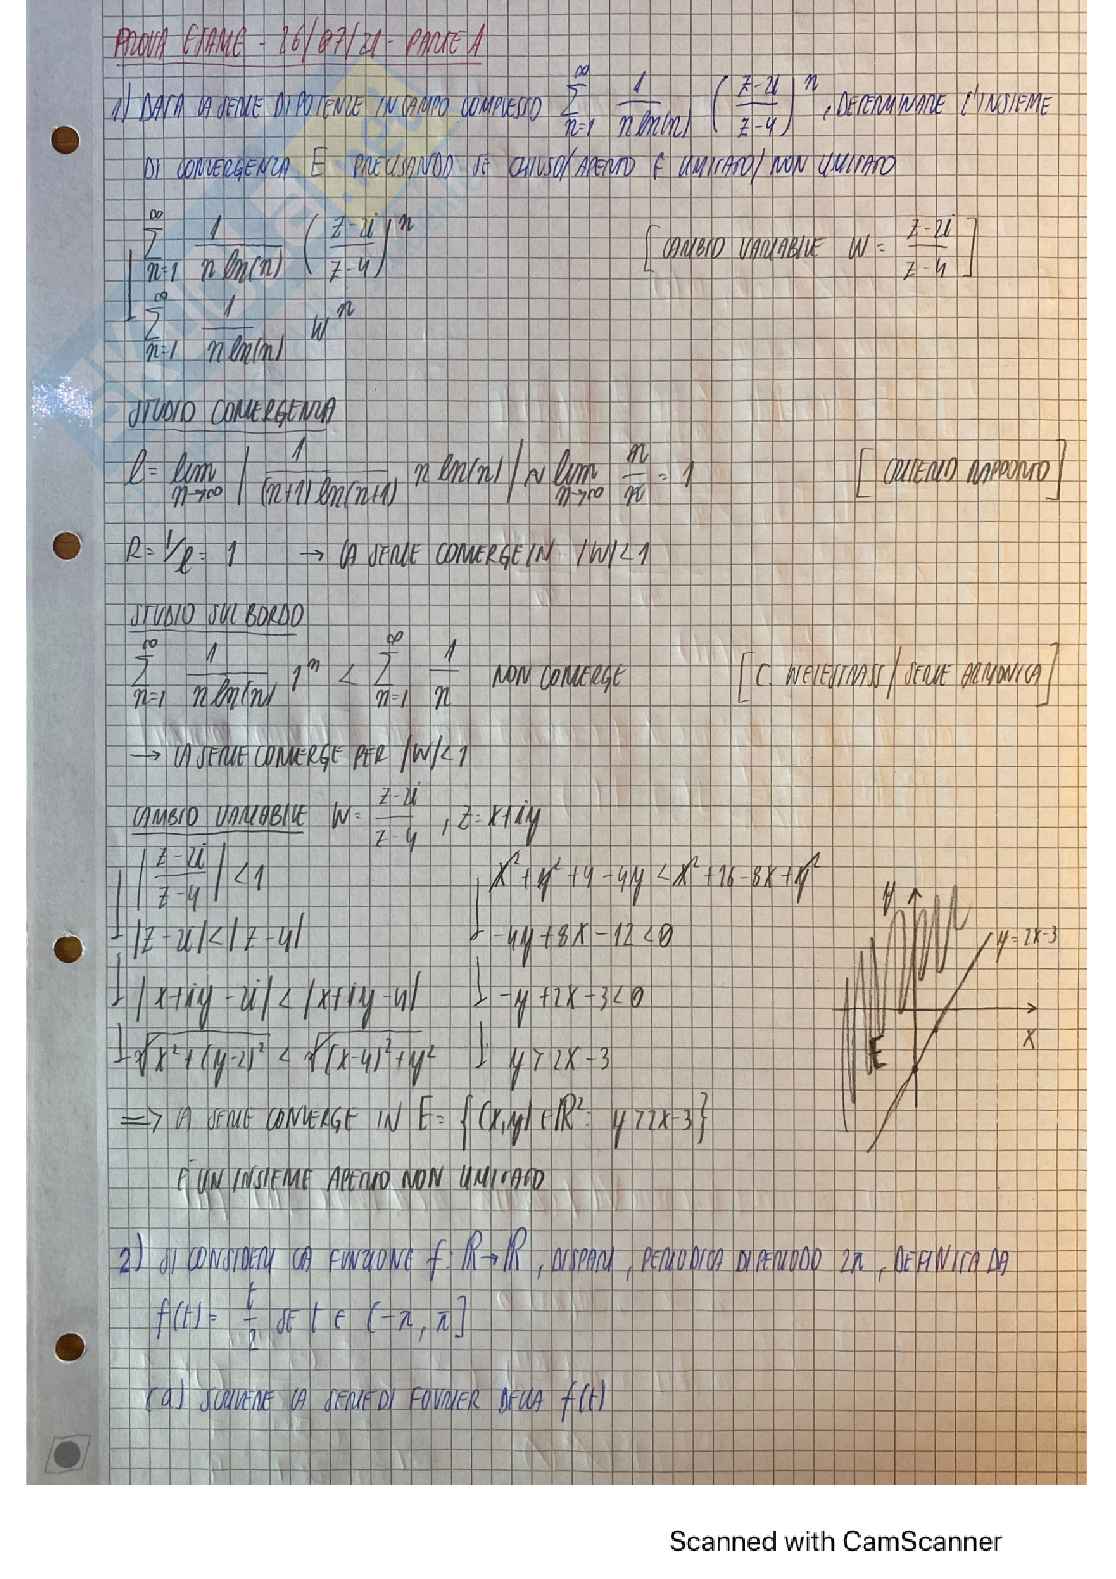 PROVA ESAME - 26/07/21 - PARTE A
1) DATA LA SERIE DI POTENZE IN CAMPO COMPLESSO ∑_{n=1}^{∞} 1/(n ln(n)) ((z-2i)/(z-4))^n, DETERMINARE L'INSIEME
DI CONVERGENZA E PRECISANDO SE CHIUSO/APERTO E LIMITATO/NON LIMITATO
∑_{n=1}^{∞} 1/(n ln(n)) ((z-2i)/(z-4))^n [CAMBIO VARIABILE W = (z-2i)/(z-4)]
∑_{n=1}^{∞} 1/(n ln(n)) W^n
STUDIO CONVERGENZA
l = lim_{n→∞} | 1/((n+1) ln(n+1)) n ln(n) | ~ lim_{n→∞} n/n = 1 [CRITERIO RAPPORTO]
R = 1/l = 1 → LA SERIE CONVERGE IN |W|<1
STUDIO SUL BORDO
∑_{n=1}^{∞} 1/(n ln(n)) 1^n < ∑_{n=1}^{∞} 1/n NON CONVERGE [C. WEIESTRASS/SERIE ARMONICA]
→ LA SERIE CONVERGE PER |W|<1
CAMBIO VARIABILE W = (z-2i)/(z-4), z = x+iy
|(z-2i)/(z-4)| < 1
|z-2i| < |z-4|
|x+iy-2i| < |x+iy-4|
√(x²+(y-2)²) < √((x-4)²+y²)
x²+y²+4-4y < x²+16-8x+y²
-4y+8x-12<0
-y+2x-3<0
y>2x-3
y
y=2x-3
x
E
=> LA SERIE CONVERGE IN E = {(x,y) ∈ ℝ²: y>2x-3}
È UN INSIEME APERTO NON LIMITATO
2) SI CONSIDERI LA FUNZIONE f: ℝ→ℝ, DISPARI, PERIODICA DI PERIODO 2π, DEFINITA DA
f(t) = t/2 SE t ∈ (-π, π]
(a) SCRIVERE LA SERIE DI FOURIER DELLA f(t)
Scanned with CamScanner